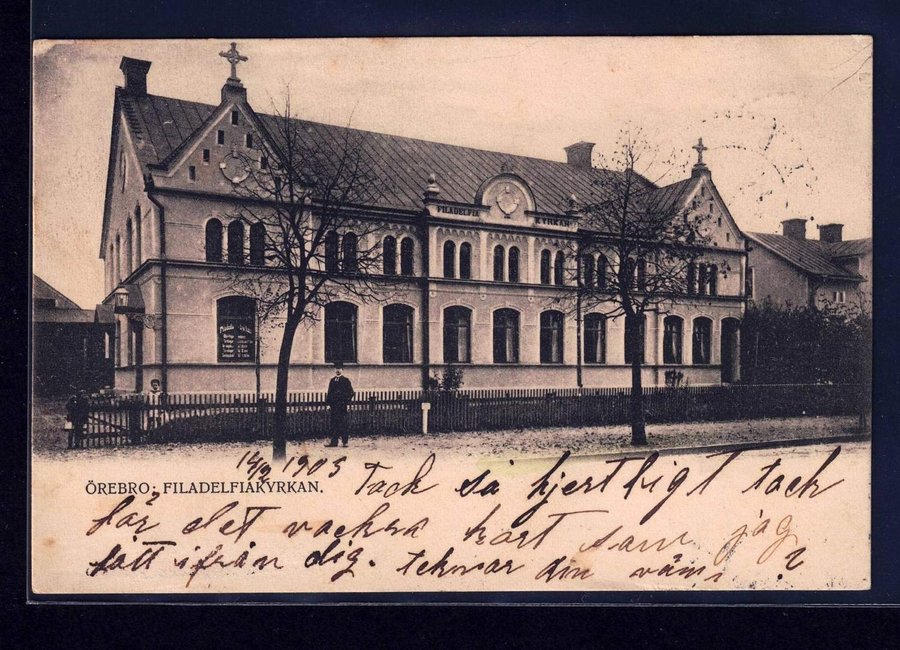 FILADELFIA KYRKAN
14/9 1905
ÖREBRO: FILADELFIAKYRKAN.
Tack så hjertligt tack
för det vackra kort som jag
fått ifrån dig. tecknar din vän